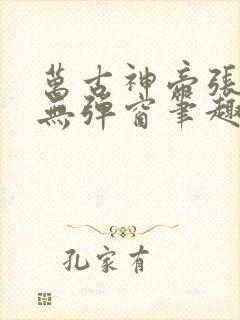 萬古神帝張
無彈窗筆趣
孔家有